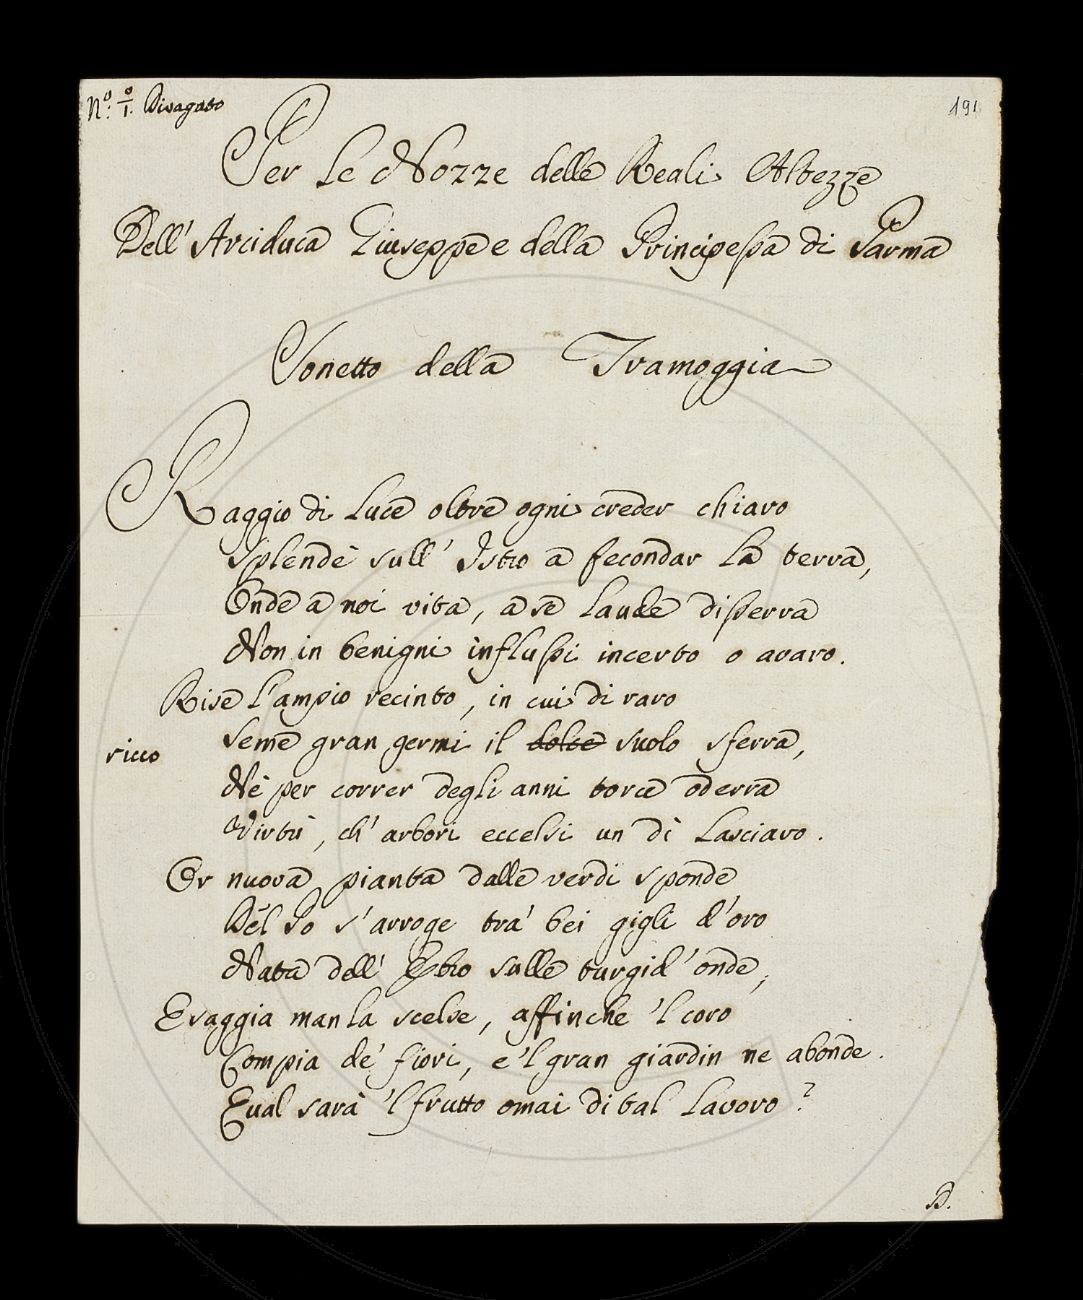 N.º 0/1. Divagato
191
Per le Nozze delle Reali Altezze
Dell' Arciduca Giuseppe e della Principessa di Parma
Sonetto della Tramoggia
Raggio di Luce oltre ogni creder chiaro
Splende sull' Istro a fecondar la terra,
Onde a noi vita, a se laude disserra
Non in benigni influssi incerto o avaro.
Rise l'ampio recinto, in cui di raro
Seme gran germi il dolce suolo sferra,
ricco
Nè per correr degli anni torce od erra
Virtù, ch' arbori eccelsi un dì lasciaro.
Or nuova pianta dalle verdi sponde
Del Po s' arroge tra' bei gigli d'oro
Nata dell' Ebro sulle turgid' onde,
E saggia man la scelse, affinche 'l coro
Compia de' fiori, e 'l gran giardin ne abonde.
Qual sarà 'l frutto omai di tal lavoro?
B.